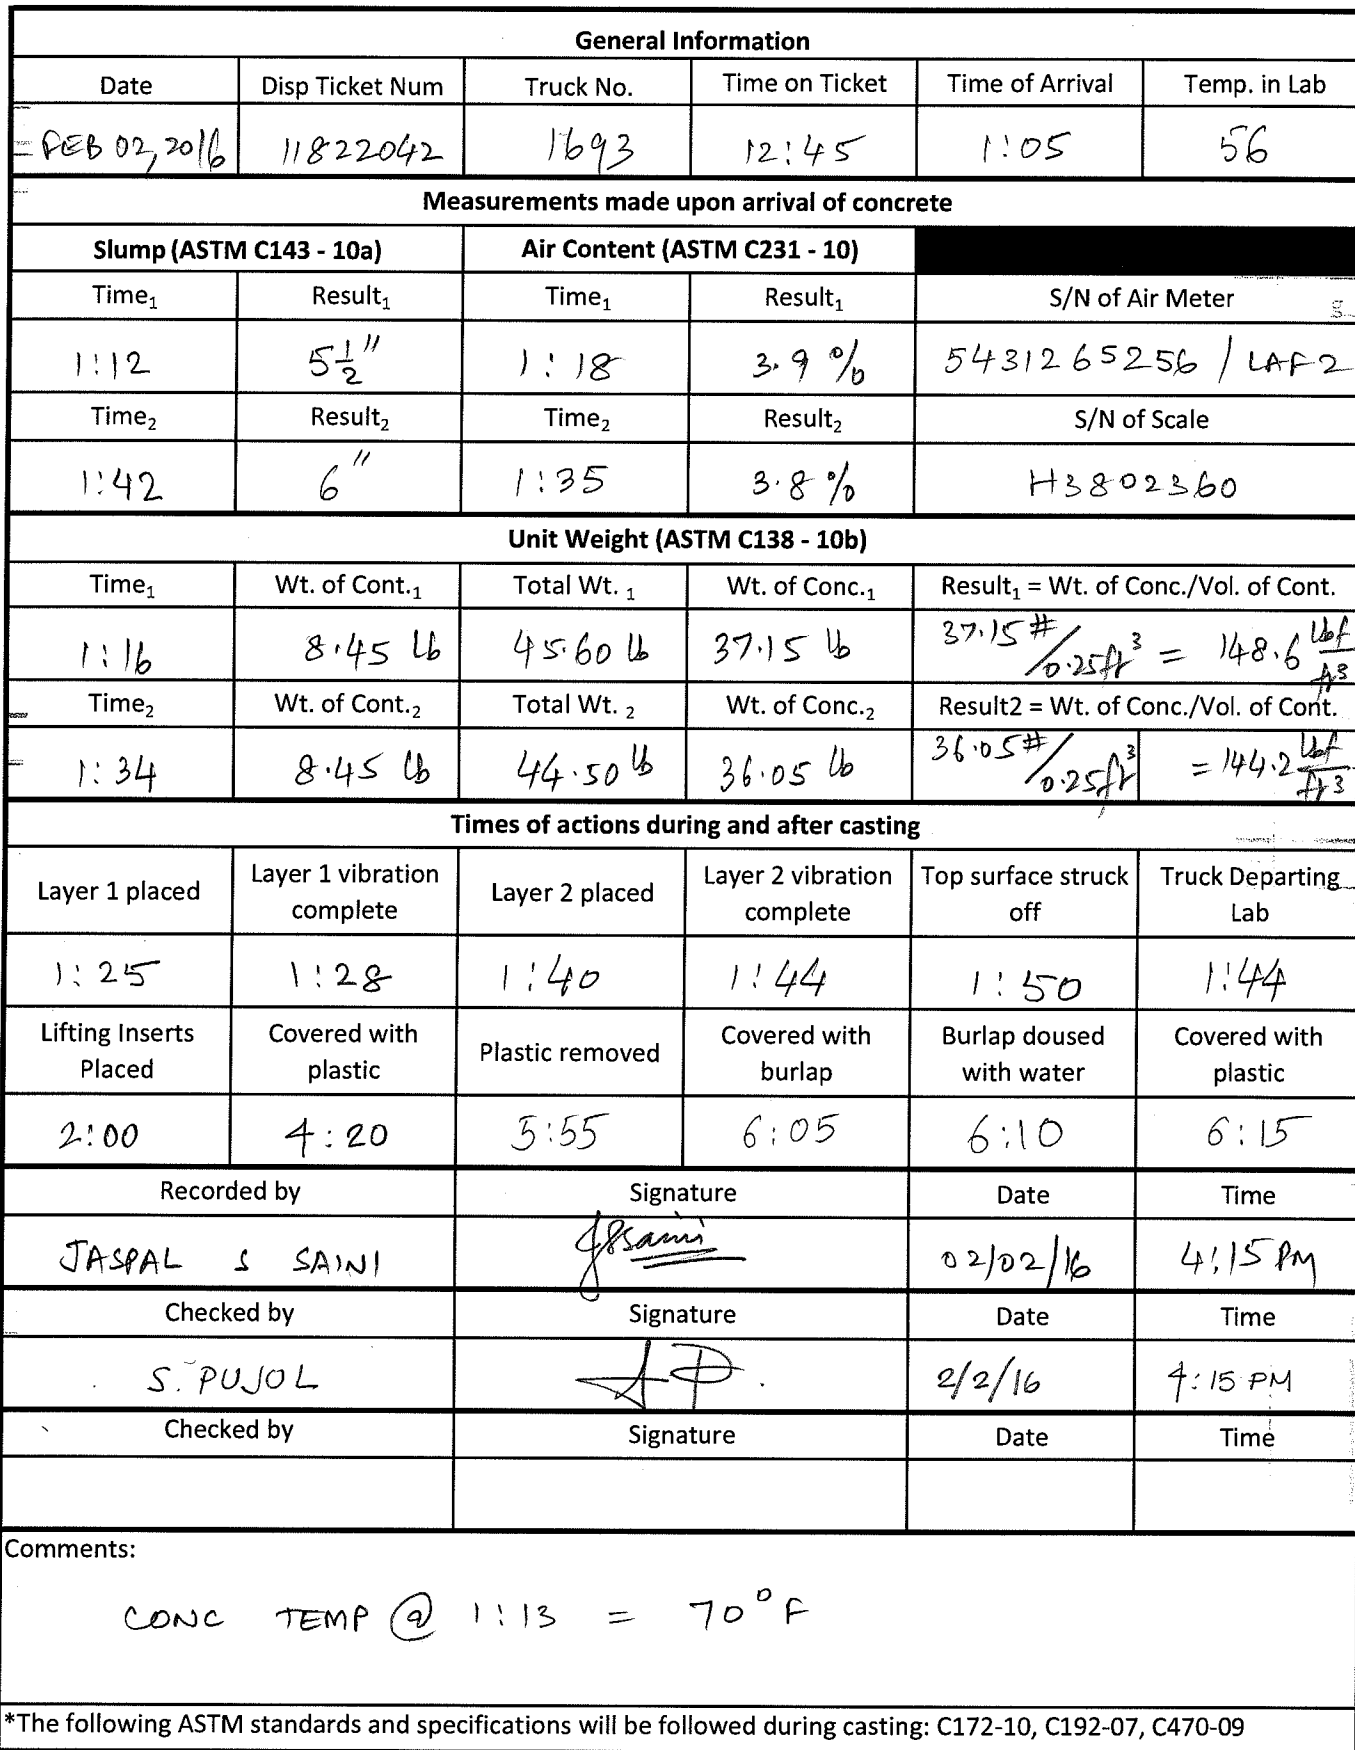 General Information
Date Disp Ticket Num Truck No. Time on Ticket Time of Arrival Temp. in Lab
FEB 02, 2016 11822042 1693 12:45 1:05 56
Measurements made upon arrival of concrete
Slump (ASTM C143 - 10a) Air Content (ASTM C231 - 10)
Time₁ Result₁ Time₁ Result₁ S/N of Air Meter
1:12 5½" 1:18 3.9 % 5431265256 / LAF2
Time₂ Result₂ Time₂ Result₂ S/N of Scale
1:42 6" 1:35 3.8 % H3802360
Unit Weight (ASTM C138 - 10b)
Time₁ Wt. of Cont.₁ Total Wt. ₁ Wt. of Conc.₁ Result₁ = Wt. of Conc./Vol. of Cont.
1:16 8.45 lb 45.60 lb 37.15 lb 37.15 #/0.25ft³ = 148.6 lbf/ft³
Time₂ Wt. of Cont.₂ Total Wt. ₂ Wt. of Conc.₂ Result2 = Wt. of Conc./Vol. of Cont.
1:34 8.45 lb 44.50 lb 36.05 lb 36.05#/0.25ft³ = 144.2 lbf/ft³
Times of actions during and after casting
Layer 1 placed Layer 1 vibration complete Layer 2 placed Layer 2 vibration complete Top surface struck off Truck Departing Lab
1:25 1:28 1:40 1:44 1:50 1:44
Lifting Inserts Placed Covered with plastic Plastic removed Covered with burlap Burlap doused with water Covered with plastic
2:00 4:20 5:55 6:05 6:10 6:15
Recorded by Signature Date Time
JASPAL S SAINI JSSaini 02/02/16 4:15 PM
Checked by Signature Date Time
S. PUJOL 2/2/16 4:15 PM
Checked by Signature Date Time
Comments:
CONC TEMP @ 1:13 = 70°F
*The following ASTM standards and specifications will be followed during casting: C172-10, C192-07, C470-09